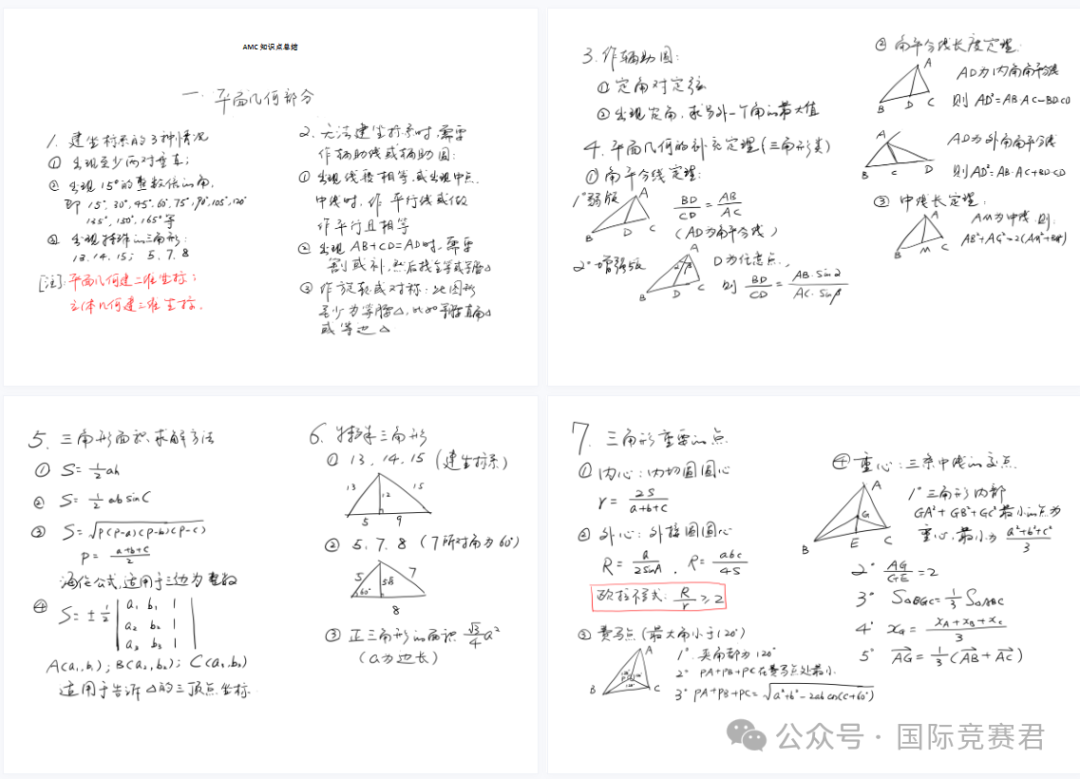 AMC 知识点总结
一. 平面几何部分
1. 建坐标系的3种情况
① 出现至少两对垂直;
② 出现15°的整数倍的角,
即 15°, 30°, 45°, 60°, 75°, 90°, 105°, 120°
135°, 150°, 165° 等
③ 出现特殊的三角形:
13. 14. 15; 5. 7. 8
[注]: 平面几何建二维坐标;
立体几何建三维坐标.
2. 无法建坐标系时, 需要
作辅助线或辅助圆:
① 出现线段相等, 或出现中点,
中线时, 作平行线或做
作平行且相等
② 出现 AB+CD=AD时, 需要
割或补, 然后找全等或等腰△
③ 作旋转或对称: 此图形
至少为等腰△, 比如等腰直角△
或等边△
3. 作辅助圆:
① 定角对定弦
② 出现定角, 求另外一个角的最大值
4. 平面几何的补充定理(三角形类)
① 角平分线定理:
1° 弱版
A
B D C
BD/CD = AB/AC
(AD为角平分线)
2° 增强版
A
B D C
D为任意点.
则 BD/CD = AB·sinα/AC·sinβ
② 角平分线长度定理:
A
B D C
AD为内角角平分线
则 AD²=AB·AC-BD·CD
A
B C D
AD为外角角平分线
则 AD²=AB·AC+BD·CD
③ 中线长定理:
A
B M C
AM为中线, 则:
AB²+AC²=2(AM²+BM²)
5. 三角形面积求解方法
① S=½ah
② S=½absinC
③ S=√P(P-a)(P-b)(P-c)
P= a+b+c/2
海伦公式, 适用于三边为整数
④ S=±½ | a₁ b₁ 1 |
| a₂ b₂ 1 |
| a₃ b₃ 1 |
A(a₁,b₁); B(a₂,b₂); C(a₃,b₃)
适用于告诉△的三顶点坐标.
6. 特殊三角形
① 13. 14. 15 (建坐标系)
13 12 15
5 9
② 5. 7. 8 (7所对角为60°)
5 7
60°
8
③ 正三角形的面积 √3/4 a²
(a为边长)
7. 三角形重要的点
① 内心: 内切圆圆心
r = 2S/a+b+c
② 外心: 外接圆圆心
R= a/2sinA , R= abc/4S
欧拉不等式: R/r ≥2
③ 费马点 (最大角小于120°)
A
B C
1°. 夹角都为120°
2° PA+PB+PC在费马点处最小.
3° PA+PB+PC=√a²+b²-2abcos(C+60°)
④ 重心: 三条中线的交点.
A
G
B E C
1° 三角形内部
GA²+GB²+GC²最小的点为
重心, 最小为 a²+b²+c²/3
2° AG/GE=2
3° S△BGC=⅓S△ABC
4° x_G= x_A+x_B+x_C/3
5° AG=⅓(AB+AC)
公众号 · 国际竞赛君